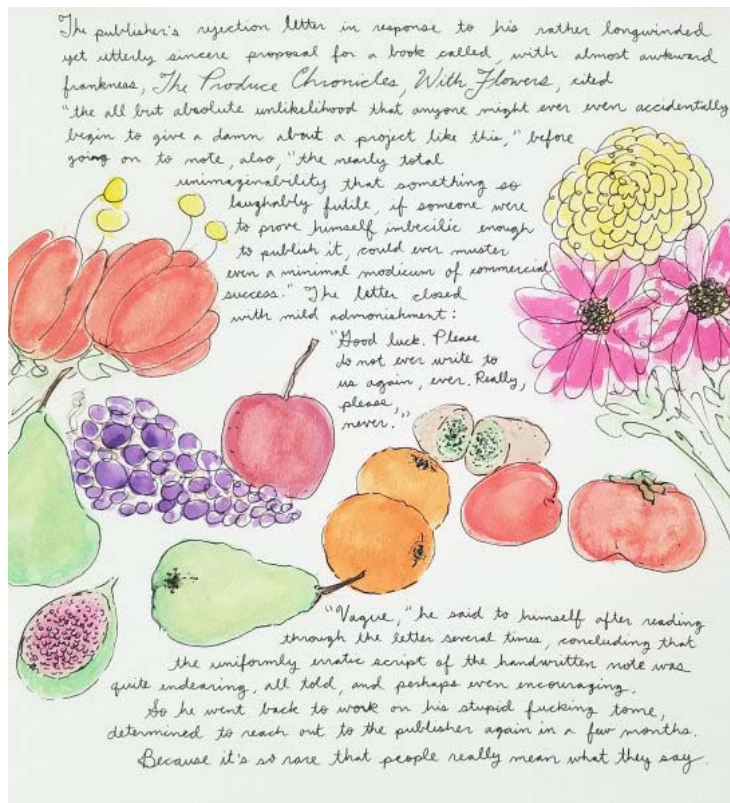 The publisher's rejection letter in response to his rather longwinded
yet utterly sincere proposal for a book called, with almost awkward
frankness, The Produce Chronicles, With Flowers, cited
"the all but absolute unlikelihood that anyone might ever even accidentally
begin to give a damn about a project like this," before
going on to note, also, "the nearly total
unimaginability that something so
laughably futile, if someone were
to prove himself imbecilic enough
to publish it, could ever muster
even a minimal modicum of commercial
success." The letter closed
with mild admonishment:
"Good luck. Please
do not ever write to
us again, ever. Really,
please,
never."
"Vague," he said to himself after reading
through the letter several times, concluding that
the uniformly erratic script of the handwritten note was
quite endearing, all told, and perhaps even encouraging.
So he went back to work on his stupid fucking tome,
determined to reach out to the publisher again in a few months.
Because it's so rare that people really mean what they say.